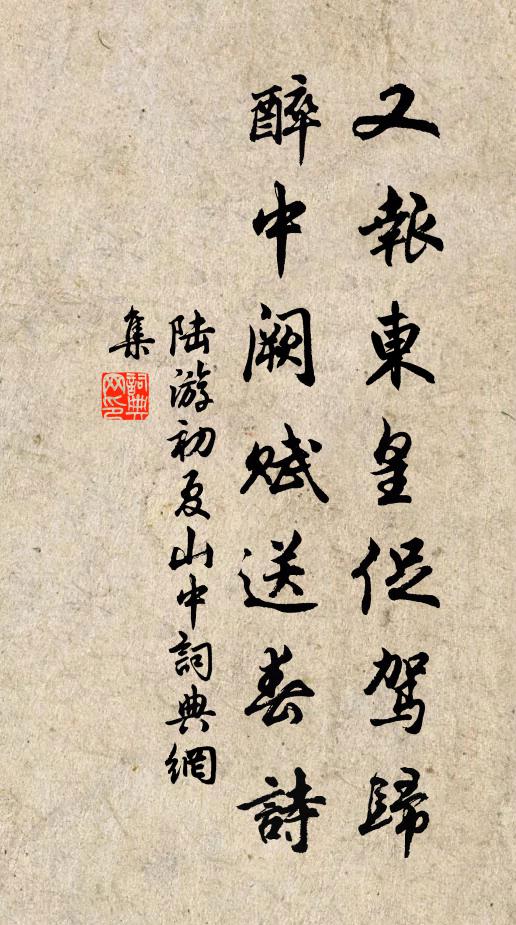 又報東皇促駕歸
醉中闕賦送春詩
陆游初夏山中詞典網
集
詞典
网印